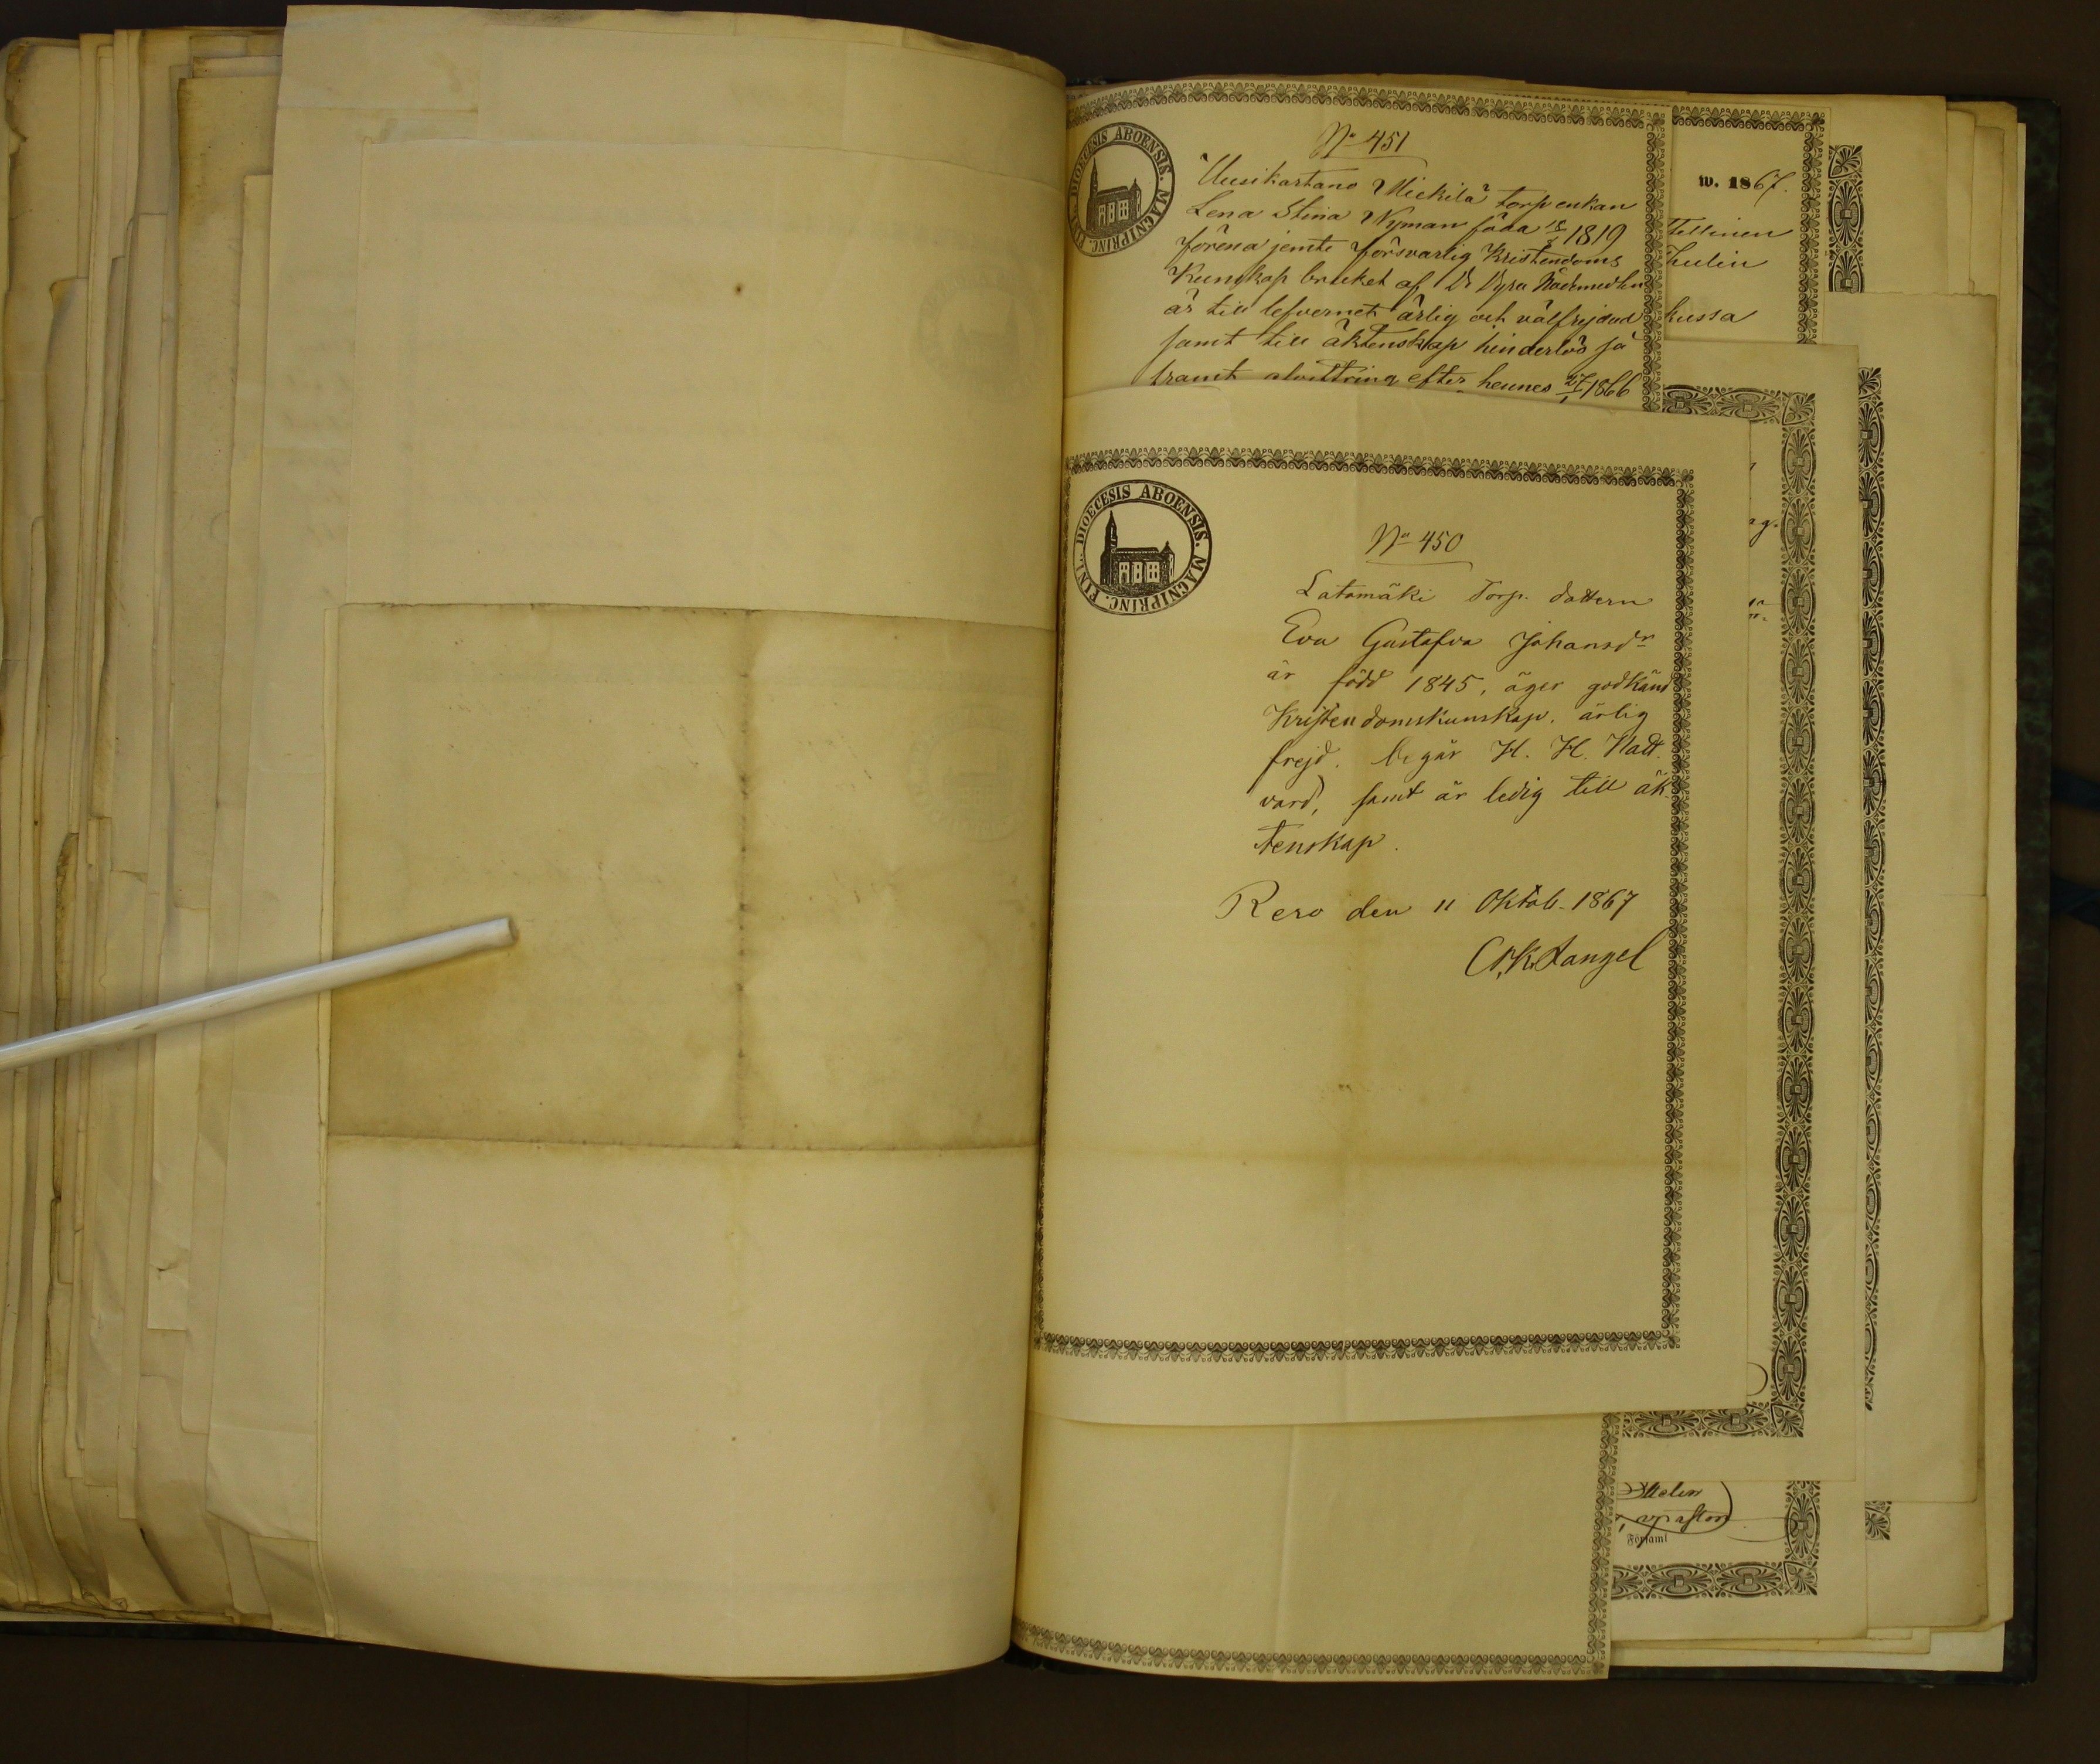 DIOECESIS ABOENSIS. MAGNIPRINC. FINL.
No 451
Uusikartano Mickilä torp enkan
Lena Stina Nyman föda 15/8 1819
förena jemte försvarlig Kristendoms
Kunskap bruket af D Dyra Nådemedlen
är till lefvernet ärlig och välfrejdad
samt till äktenskap hinderlös så
framt afvittring efter hennes 27/1 1866
w. 1867.
Tellinen
Thulin
kussa
DIOECESIS ABOENSIS. MAGNIPRINC. FINL.
No 450
Latomäki Torp. dottern
Eva Gustafva Johansdr
är född 1845, äger godkänd
Kristendomskunskap, ärlig
frejd. begår H. H. Natt
vard, samt är ledig till äk-
tenskap.
Reso den 11 Oktob. 1867
Langel
Församl